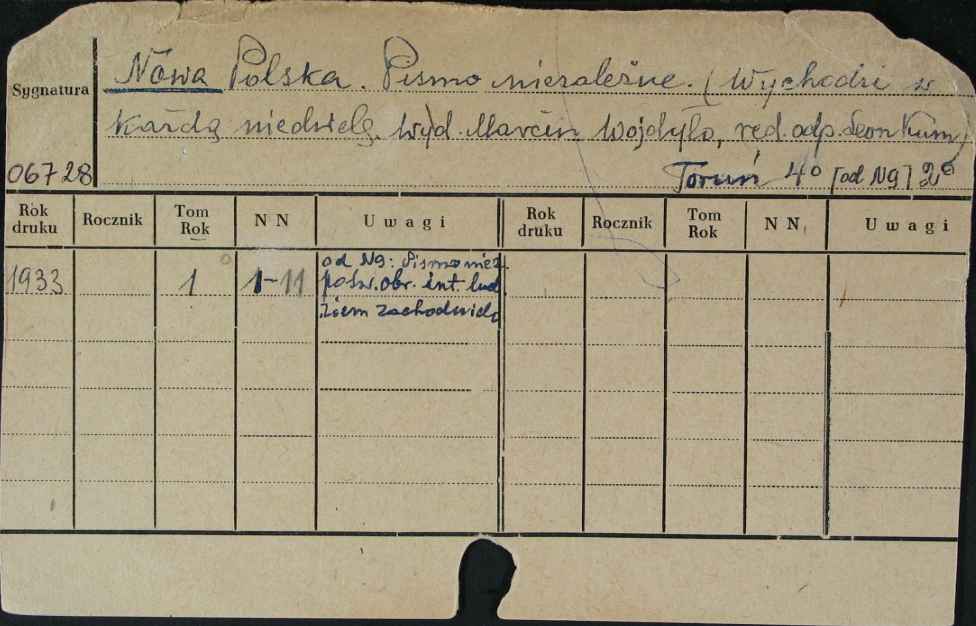 Nowa Polska. Pismo niezależne. (Wychodzi w
Sygnatura
każdą niedzielę. Wyd. Marcin Wojdyło, red. odp. Leon Kum)
06728
Toruń 4° [od N9] 2°
Rok druku Rocznik Tom Rok N N Uwagi Rok druku Rocznik Tom Rok NN. Uwagi
od N9: Pismo niez.
1933 1 1-11 pośw. obr. int. lud.
ziem zachodnich